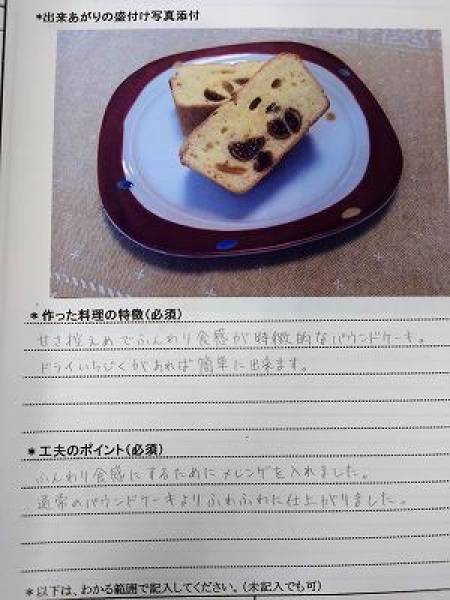 *出来あがりの盛付け写真添付
*作った料理の特徴(必須)
甘さ控えめでふんわり食感が特徴的なパウンドケーキ。
ドライいちじくがあれば簡単に出来ます。
*工夫のポイント(必須)
ふんわり食感にするためにメレンゲを入れました。
通常のパウンドケーキよりふわふわに仕上がりました。
*以下は、わかる範囲で記入してください。(未記入でも可)